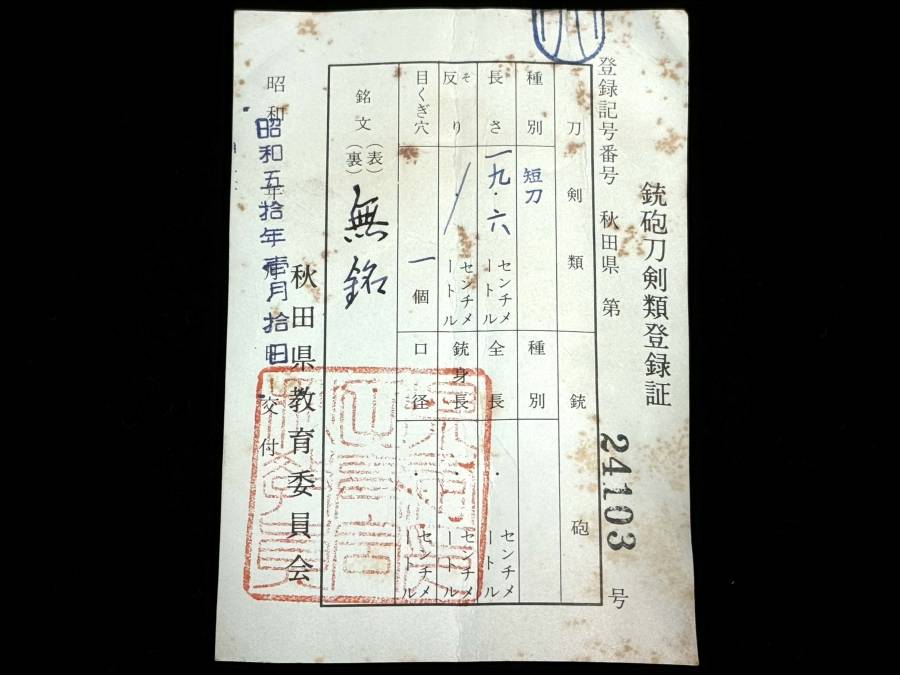 銃砲刀剣類登録証
登録記号番号 秋田県 第 24103 号
刀剣類 銃砲
種別 短刀 種別
長さ 一九.六 センチメートル 全長 . センチメートル
反り そ センチメートル 銃身長 . センチメートル
目くぎ穴 一個 口径 . センチメートル
銘文 (表) (裏) 無銘
秋田県教育委員会
昭和 年 月 日 交付
昭和五拾年壱月拾日